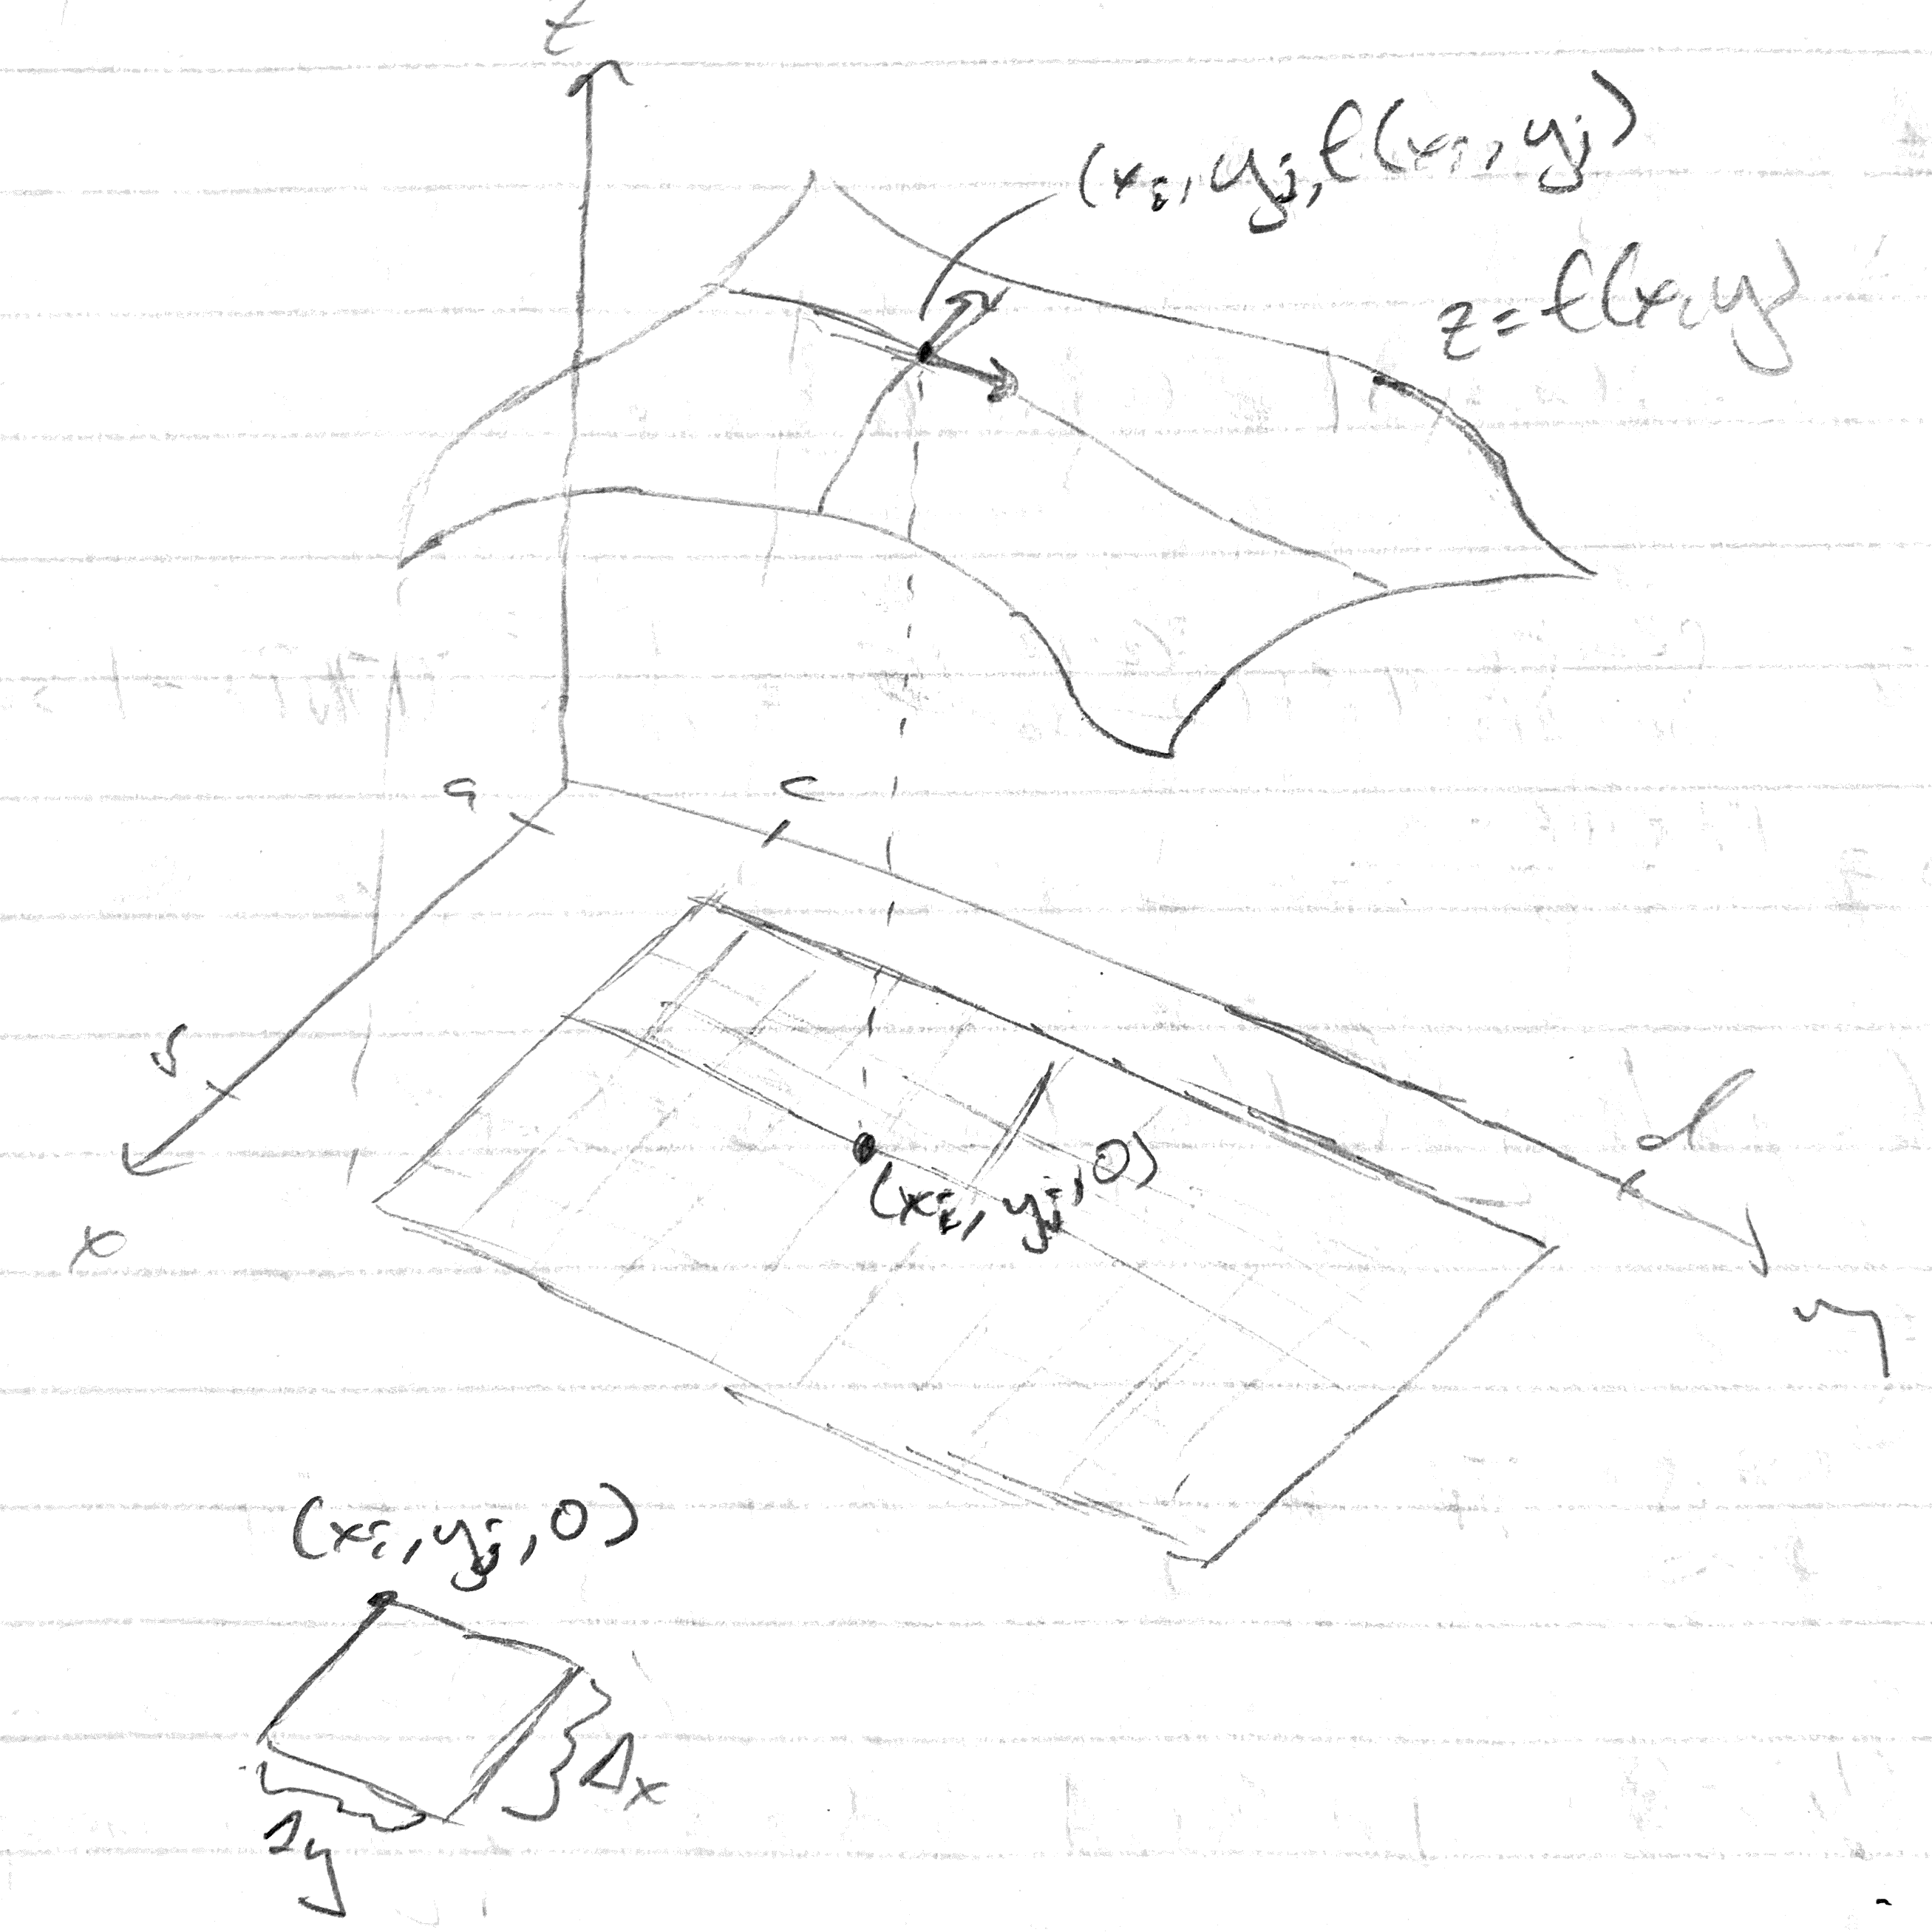 z
(xᵢ, yⱼ, f(xᵢ, yⱼ)
z = f(x, y)
a
c
b
d
(xᵢ, yⱼ, 0)
x
y
(xᵢ, yⱼ, 0)
Δx
Δy